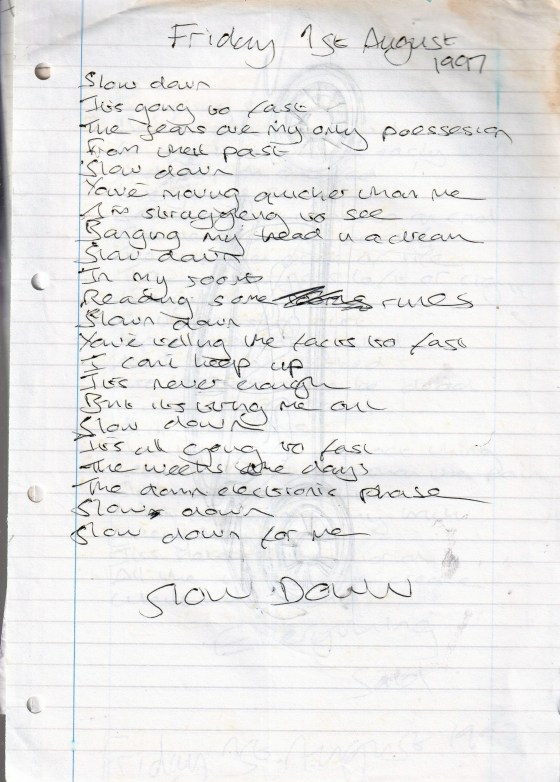 Friday 1st August
1997
Slow down
It's going to fast
The years are my only poessesion
From
past
Slow down
You're moving quicker than me
I'm struggeleng to see
Banging my head in a dream
Slow down
In my room
Reading some rules
Slown down
You're telling me facts to fast
I can't keep up
It's never enough
But its tiring me out
Slow down
It's all going to fast
The weeks the days
The damn electronic phrase
Slow down
Slow down for me
Slow Down